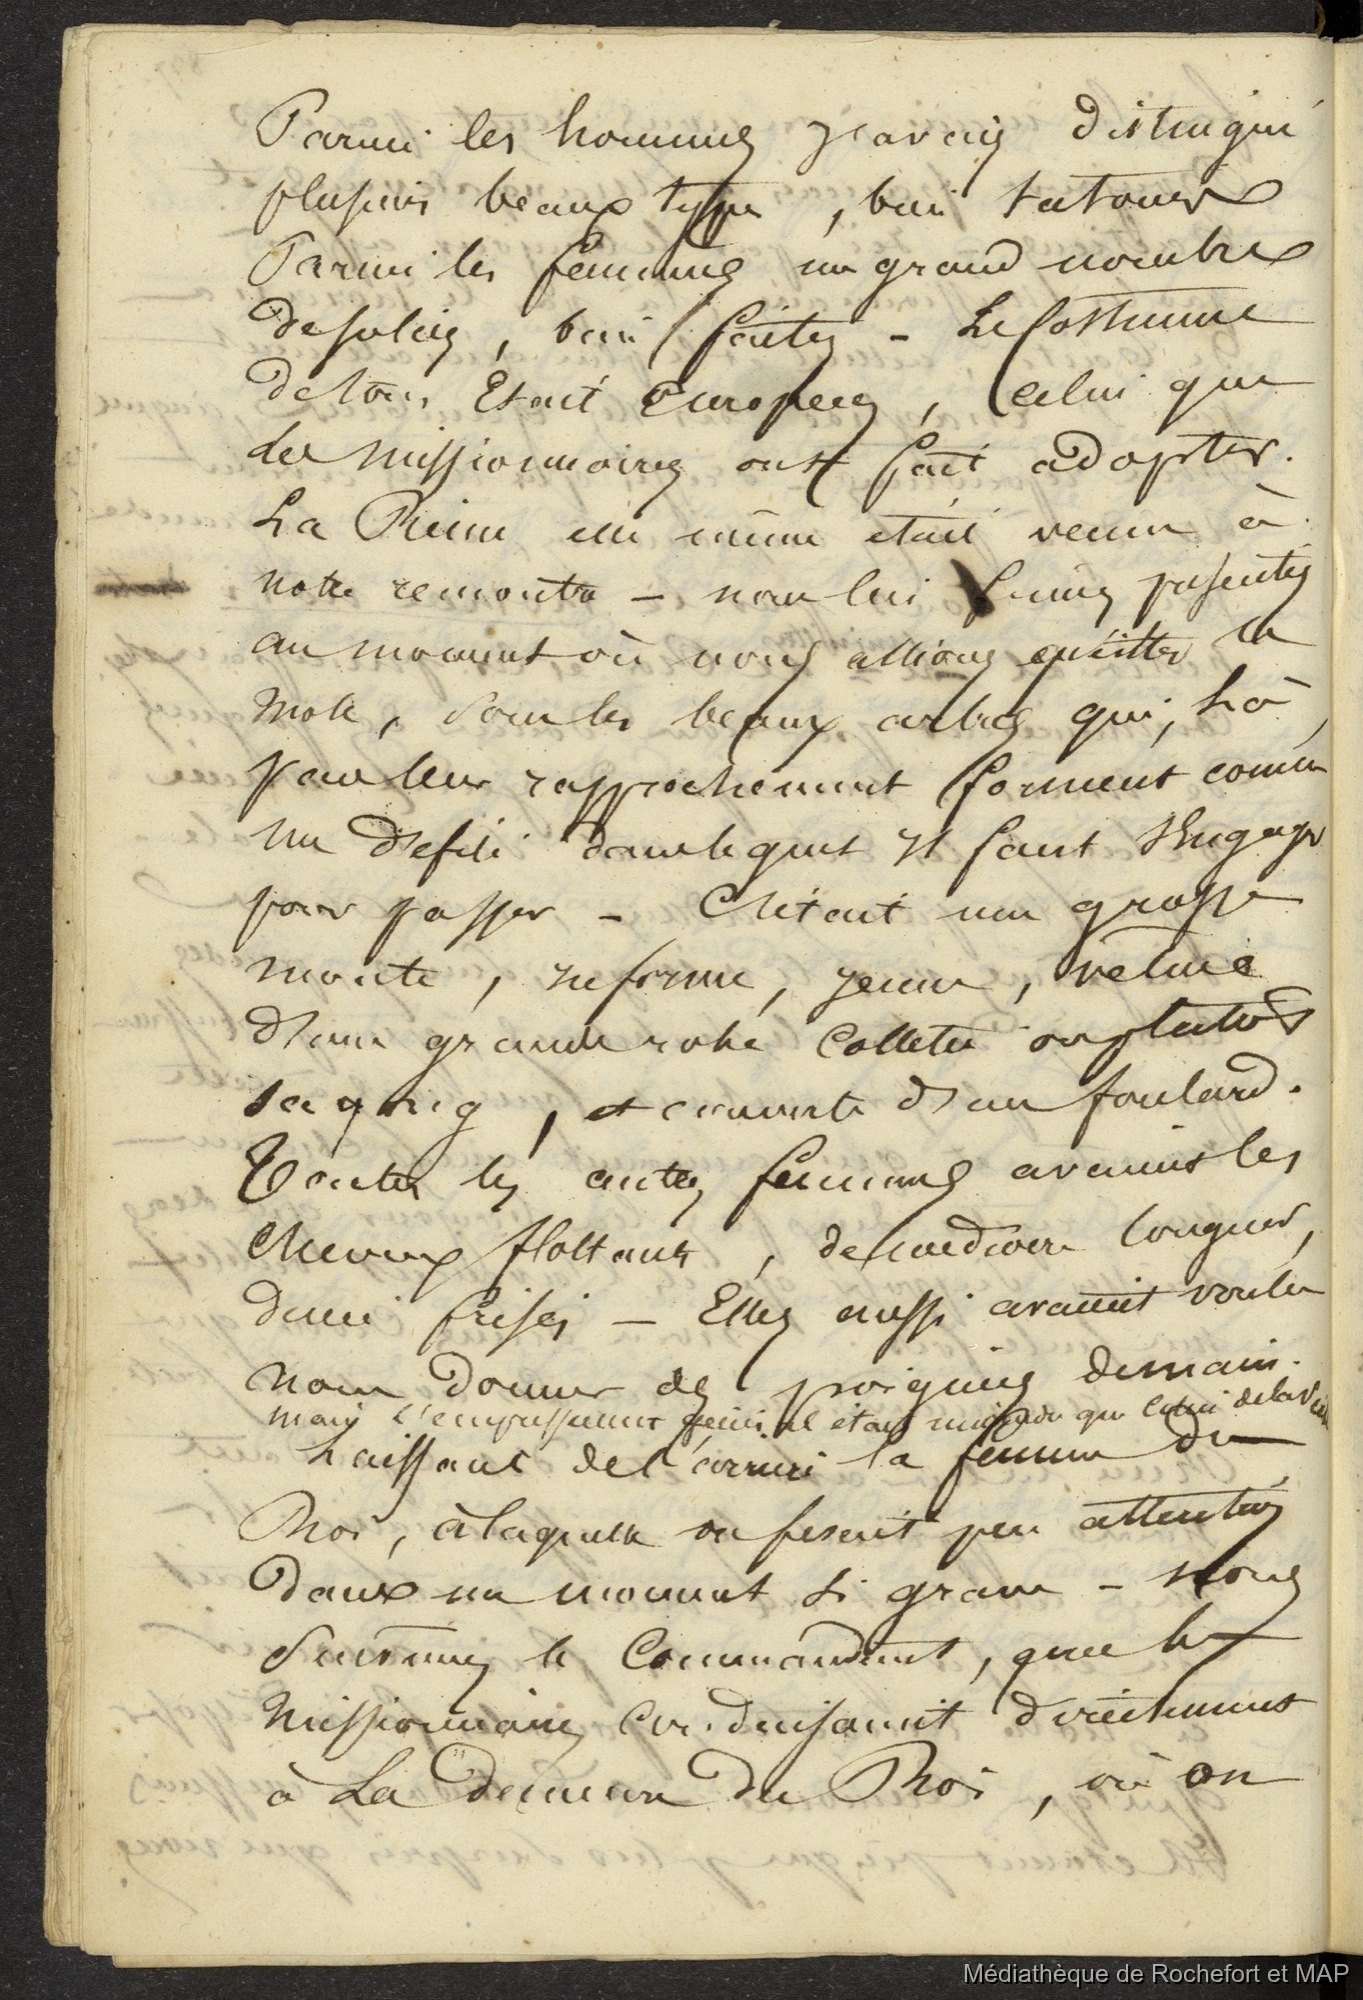 Parmi les hommes j'avais distingué
plusieurs beaux types, bien tatoués
Parmi les femmes un grand nombre
de jolies, bien faites - Le Costume
de tous était Européen, Celui que
les missionnaires ont fait adopter.
La Reine elle même était venue à
notre rencontre - nous lui fumes présentés
au moment où nous allions quitter le
Mole, sous les beaux arbres qui, là,
par leur rapprochement forment comme
un défilé dans lequel il faut s'engager
pour passer - C'était une grosse
, informe, jeune, vetue
d'une grande robe
, et couverte d'un foulard.
Toutes les autres femmes avaient les
cheveux flottants, de médiocre longueur,
demi frisés - Elles aussi avaient voulu
nous donner des poignées de main.
mais l'empressement général était moindre que celui de la
Laissant de l'arrière la femme du
Roi, à laquelle on fesait peu attention
dans un moment si grave - nous
suivimes le Commandant, que les
Missionnaires conduisaient directement
à La demeure du Roi, où on
Médiathèque de Rochefort et MAP